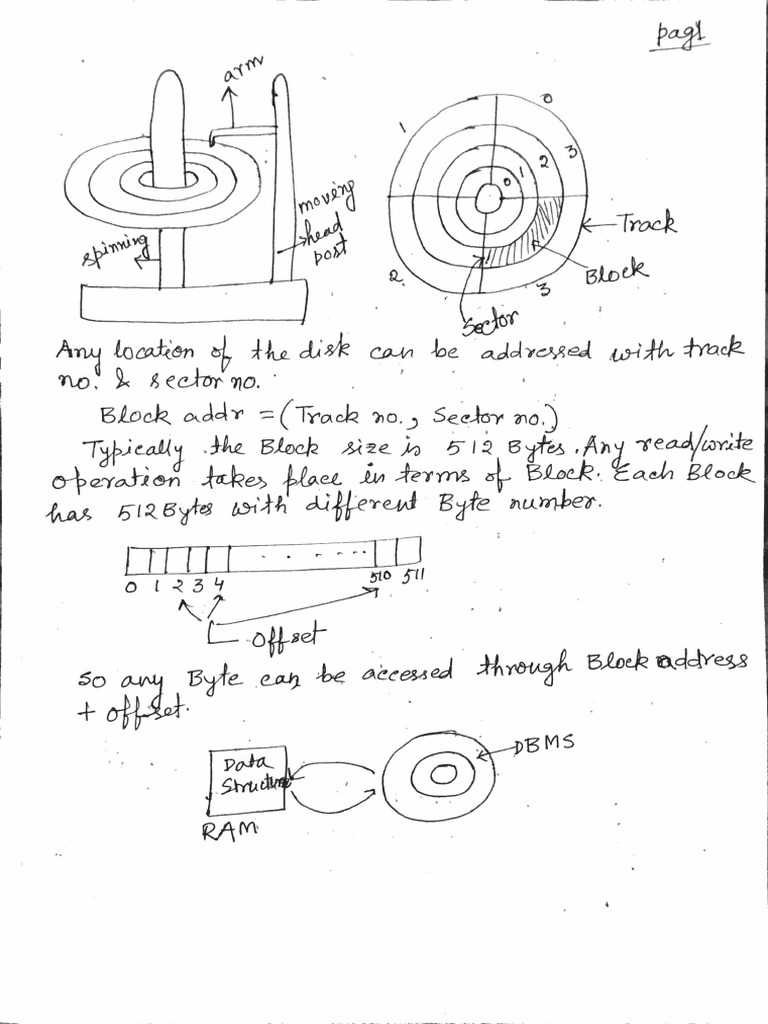 pag1
arm
moving
head
post
spinning
1
0
0 1 2 3
Track
Block
2
3
Sector
Any location of the disk can be addressed with track
no. & sector no.
Block addr = (Track no., Sector no.)
Typically the Block size is 512 Bytes. Any read/write
operation takes place in terms of Block. Each Block
has 512 Bytes with different Byte number.
0 1 2 3 4 510 511
Offset
So any Byte can be accessed through Block address
+ offset.
Data
Structure
RAM
DBMS